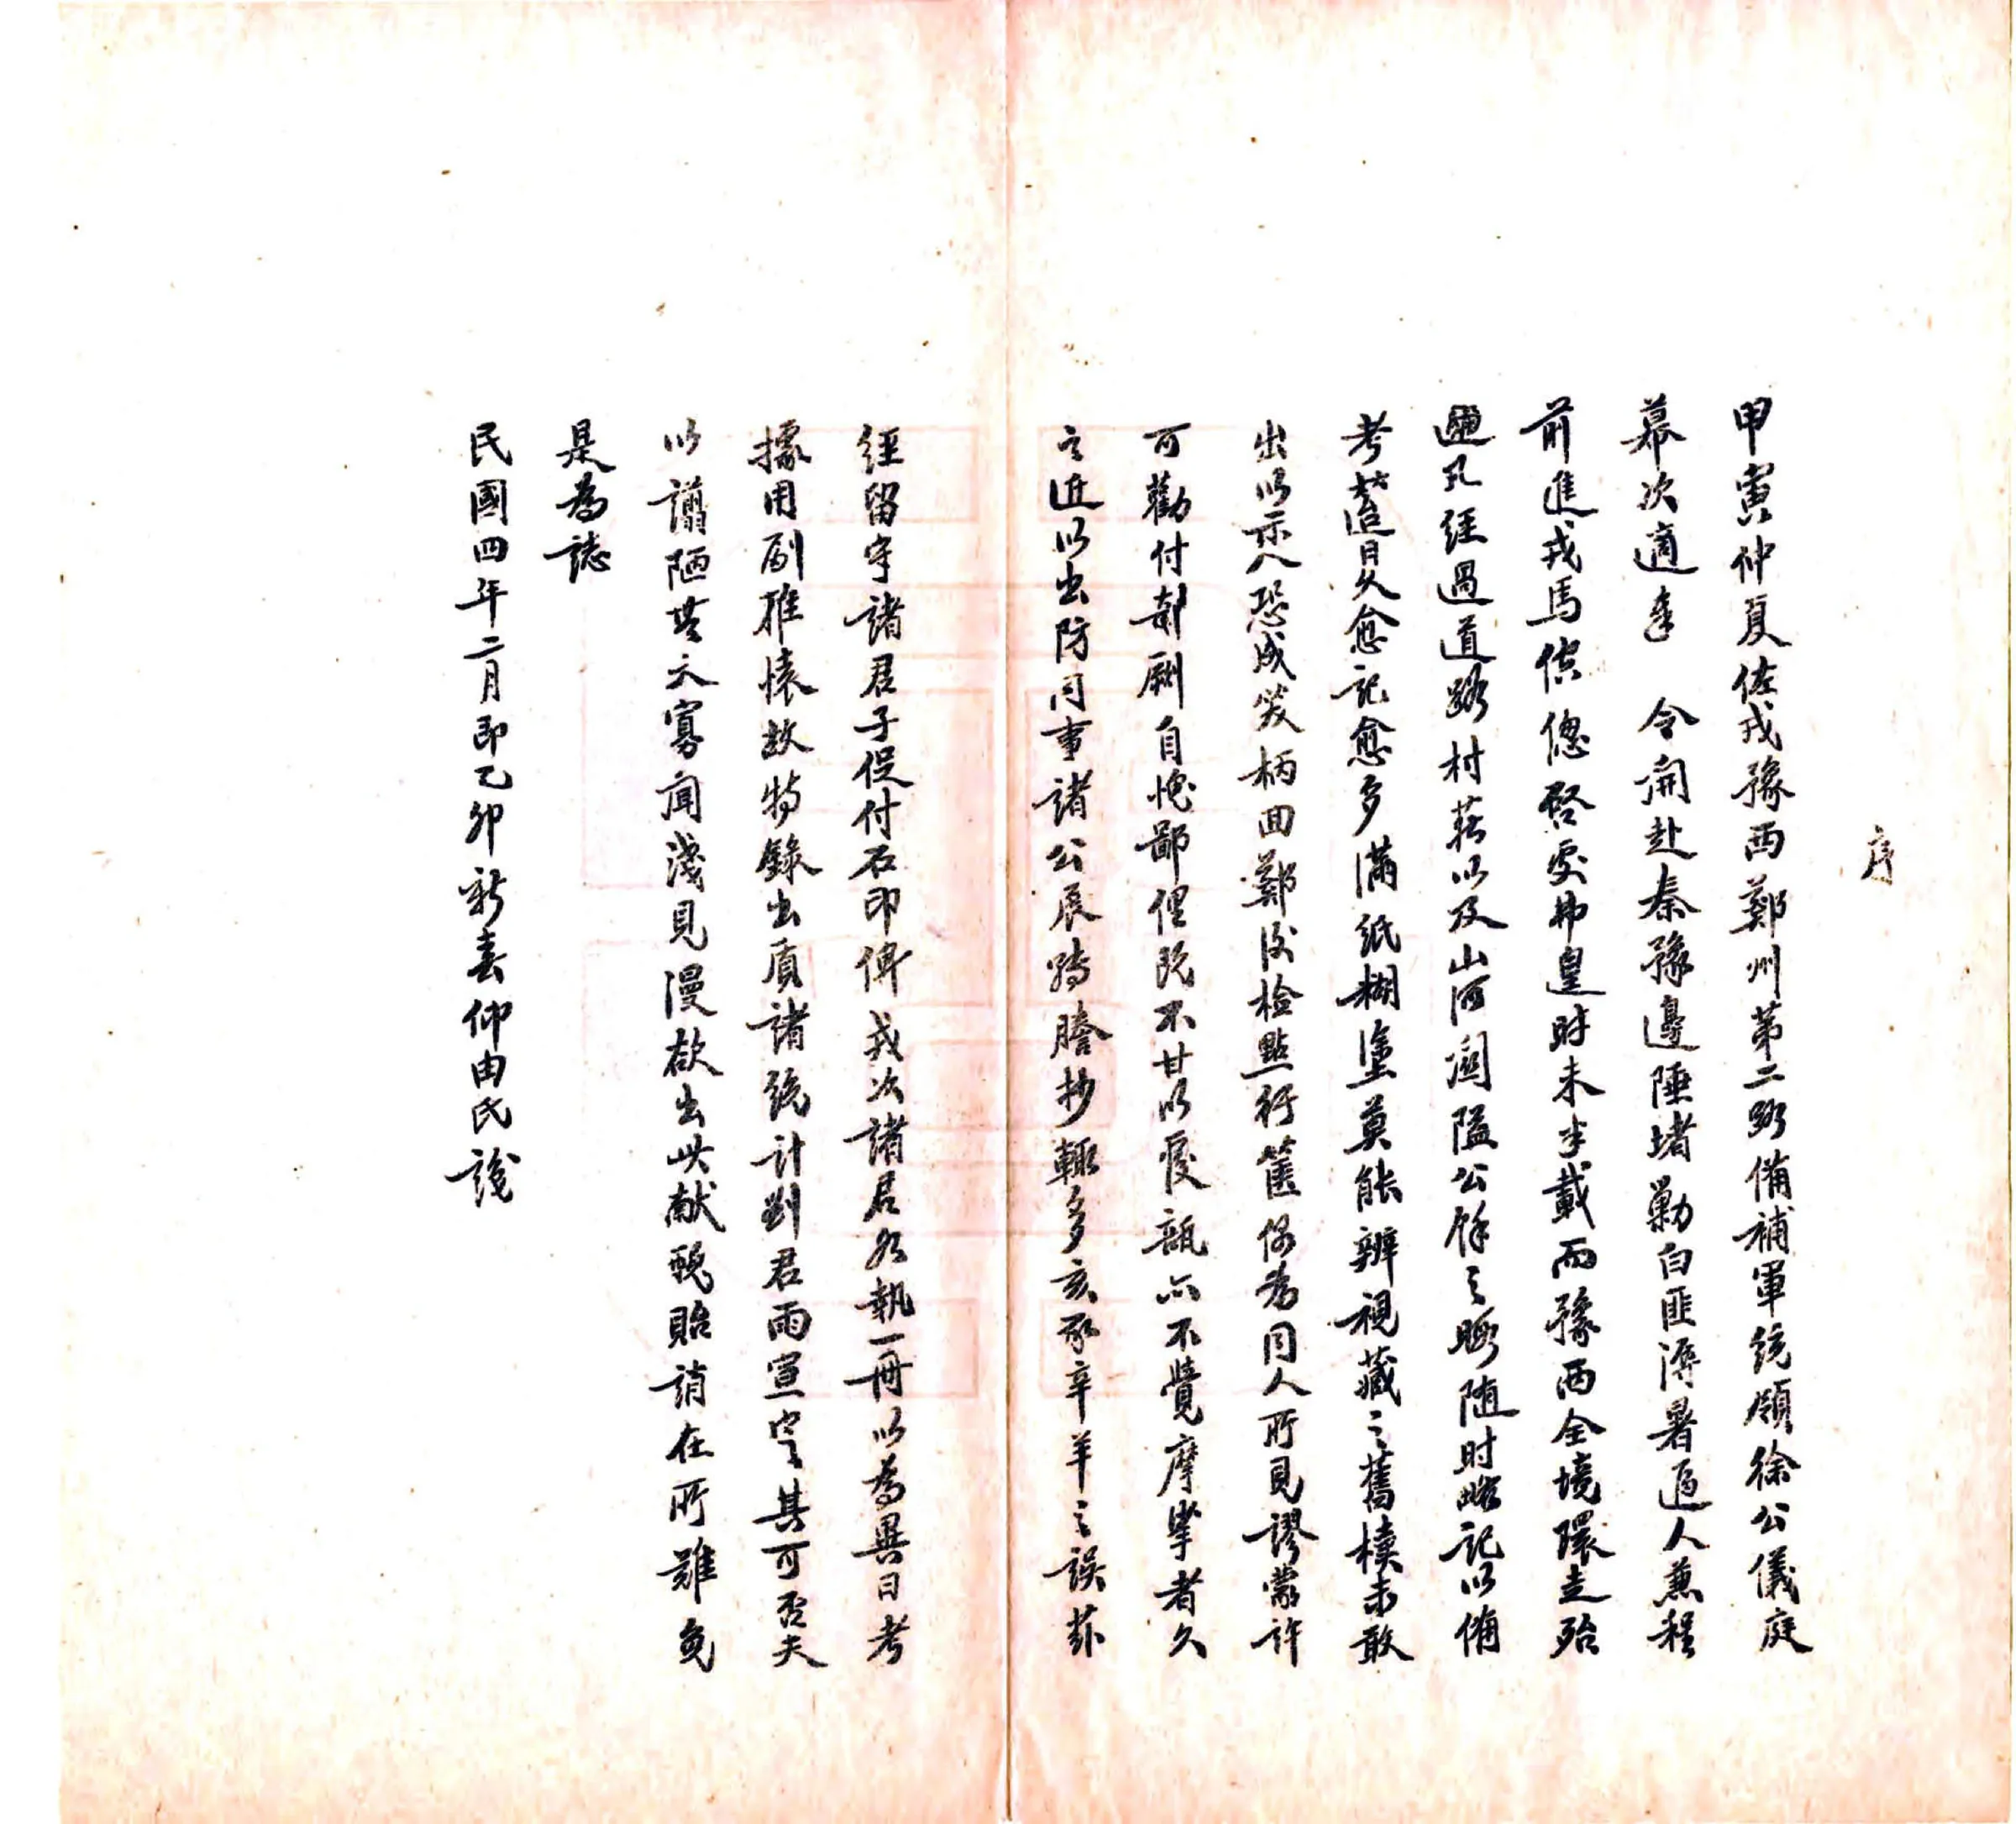 序
甲寅仲夏佐戎豫西鄭州第二路備補軍統領徐公儀庭
幕次適奉　令開赴秦豫邊陲堵勦白匪溽暑逼人兼程
前進戎馬倥傯啓處弗皇時未半載而豫西全境環走殆
遍凡經過道路村莊以及山河關隘公餘之暇随時略記以備
考查日久愈記愈多滿紙糊塗莫能辨視藏之舊櫝未敢
出以示人恐成笑柄回鄭後檢點行篋偶為同人所見謬蒙許
可勸付剞劂自愧鄙俚既不甘以覆瓿亦不覺摩挲者久
之近以出防同事諸公展轉謄抄輒多亥豕辛羊之誤茲
經留守諸君子促付石印俾戎次諸君各執一冊以為異日考
據用副雅懷故特錄出質諸統計劉君雨宣定其可否夫
以譾陋甚之寡聞淺見漫欲出此献醜貽誚在所難免
是為誌
民國四年二月即乙卯新春仰由氏識